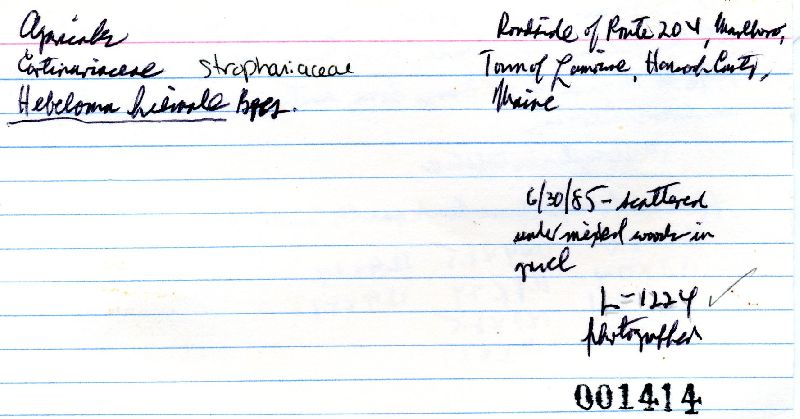 Agaricales
Cortinariaceae Strophariaceae
Hebeloma hiemale Bres.
Roadside of Route 204, Marlboro,
Town of Lamoine, Hancock County,
Maine
6/30/85 - scattered
under mixed woods in
L-1224 ✓
photographed
001414